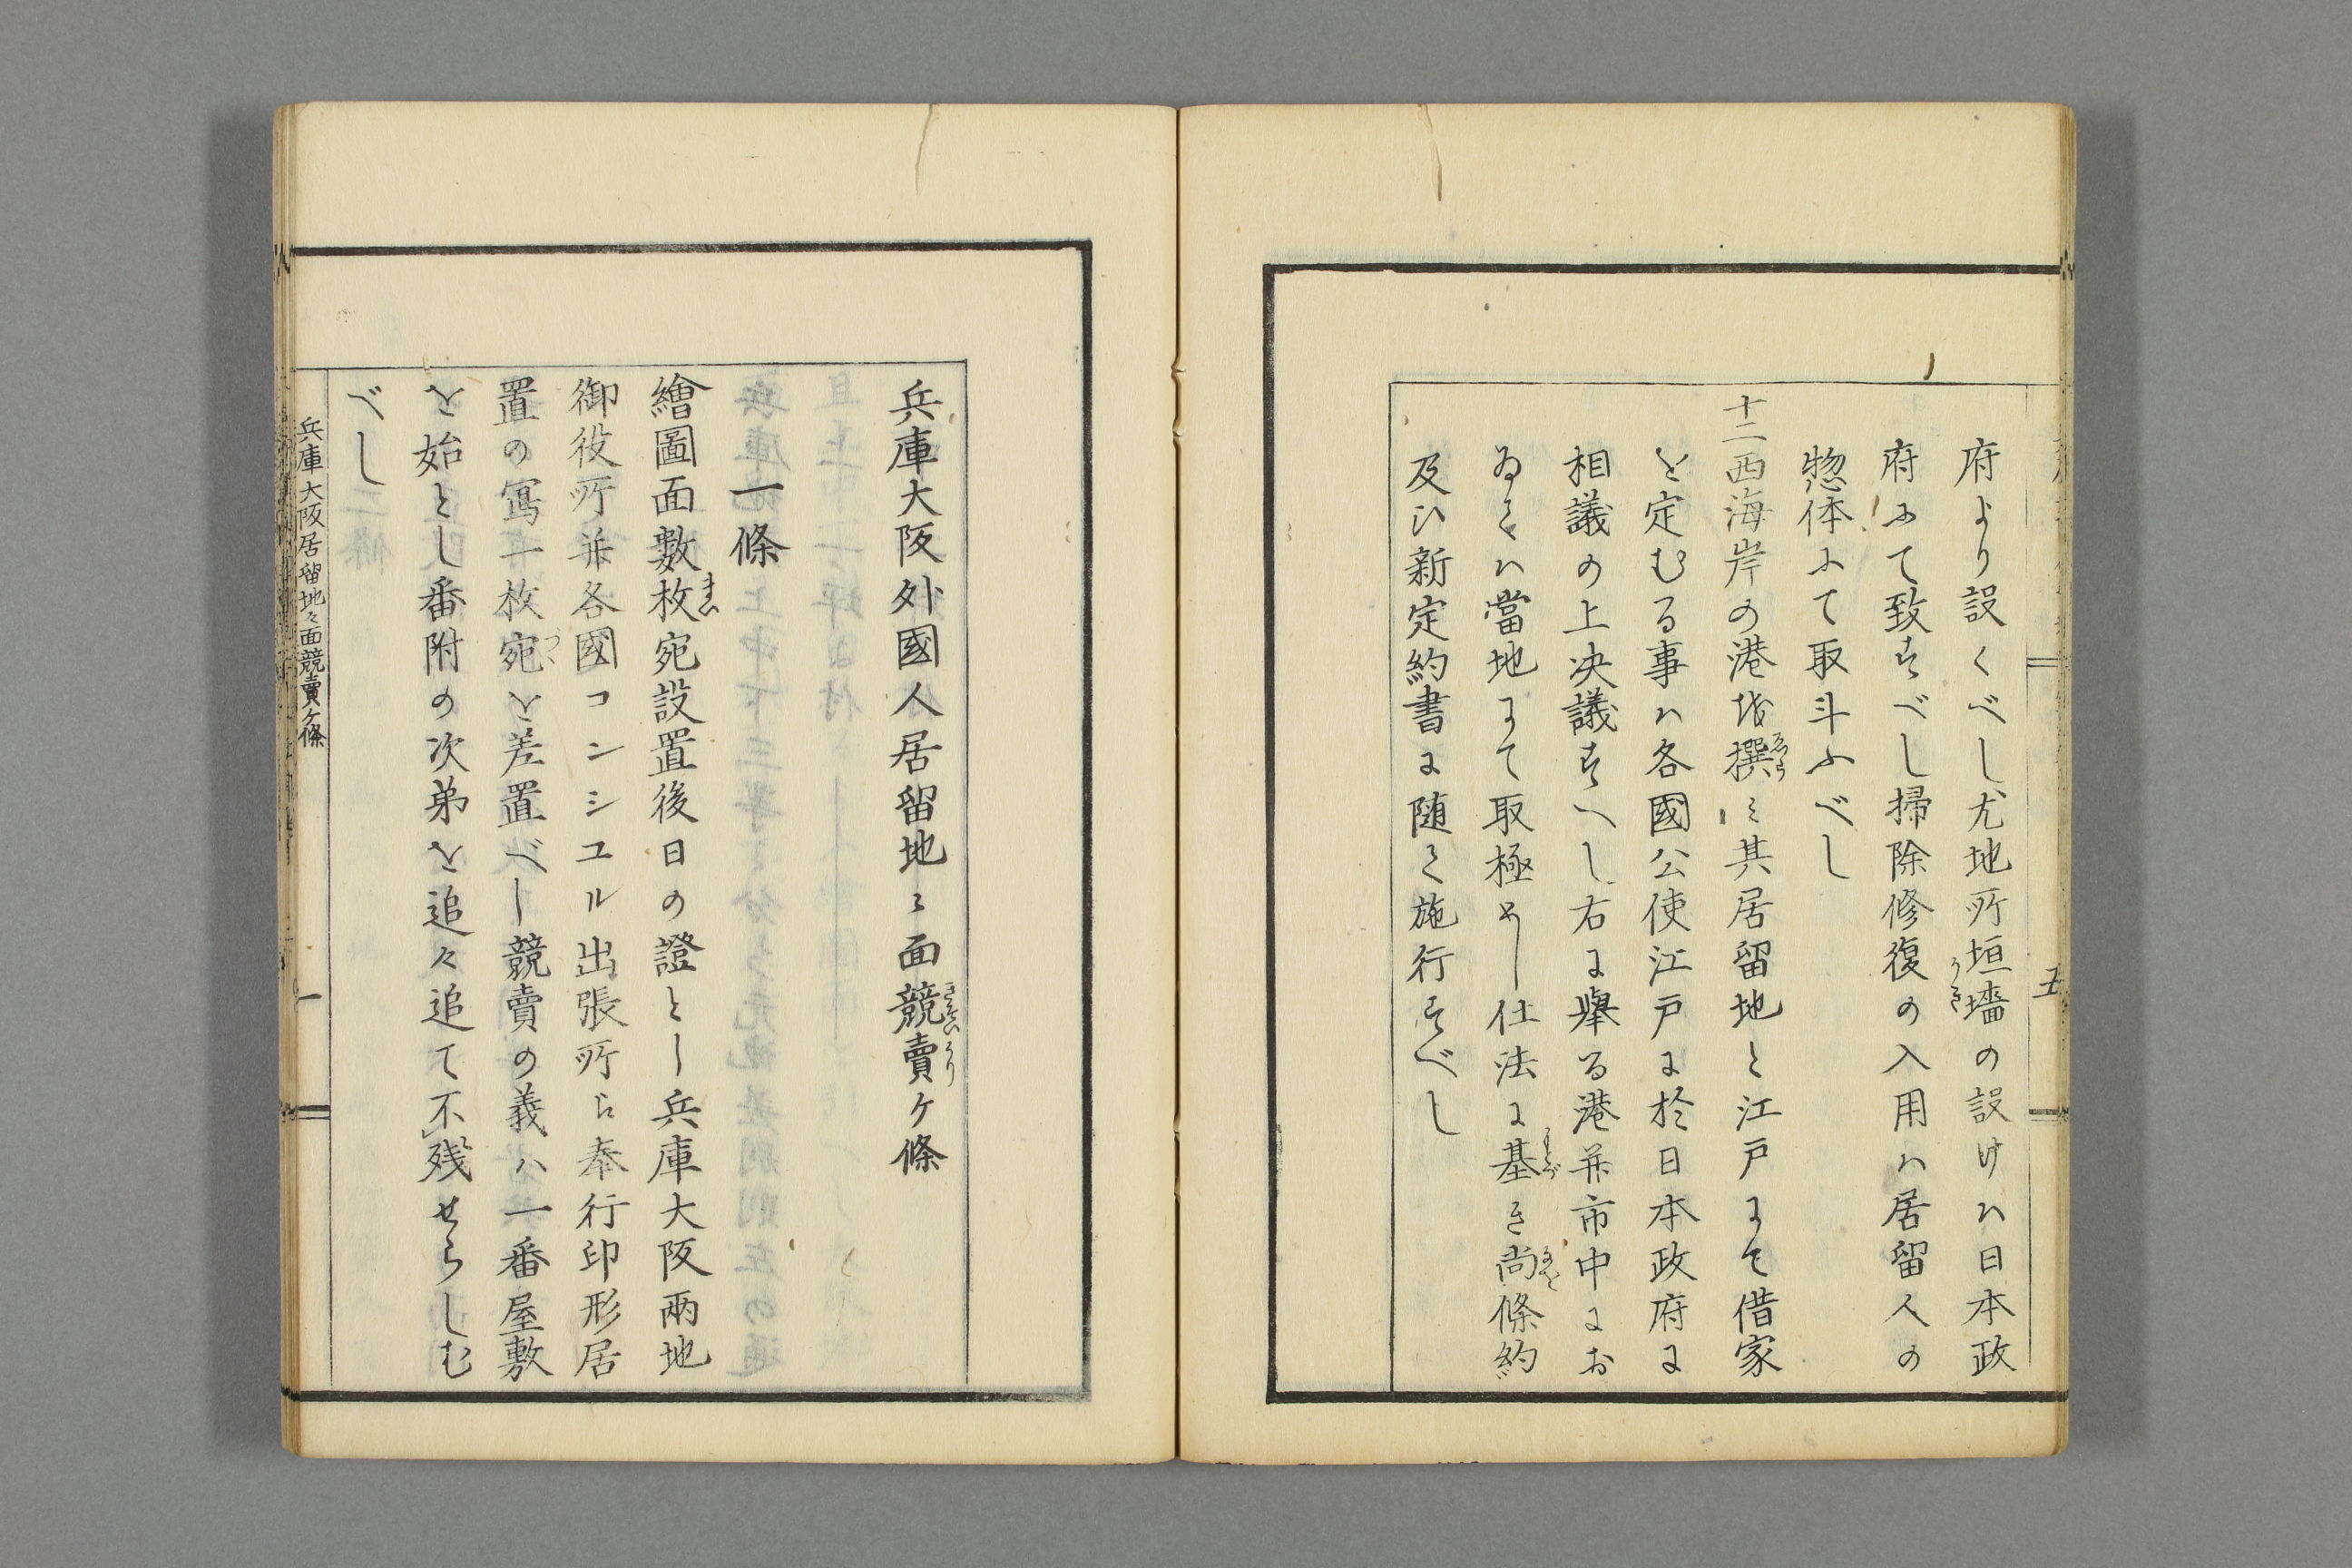 府より設くべし尤地所垣墻の設けハ日本政
府ふて致すべし掃除修復の入用ハ居留人の
惣体ふて取斗ふべし
十二西海岸の港を撰ミ其居留地と江戸まで借家
を定むる事ハ各國公使江戸に於日本政府に
相議の上决議すへし右に擧る港并市中にお
ゐてハ當地にて取極めし仕法に基き尚條約
及ひ新定約書に随て施行すべし
五
兵庫大阪外國人居留地々面競賣ケ條
一條
繪圖面數枚宛設置後日の證とし兵庫大阪兩地
御役所并各國コンシユル出張所に奉行印形居
置の寫一枚宛を差置べし競賣の義ハ一番屋敷
を始とし番附の次弟を追々追て不残せらしむ
べし
兵庫大阪居留地々面競賣ケ條
一